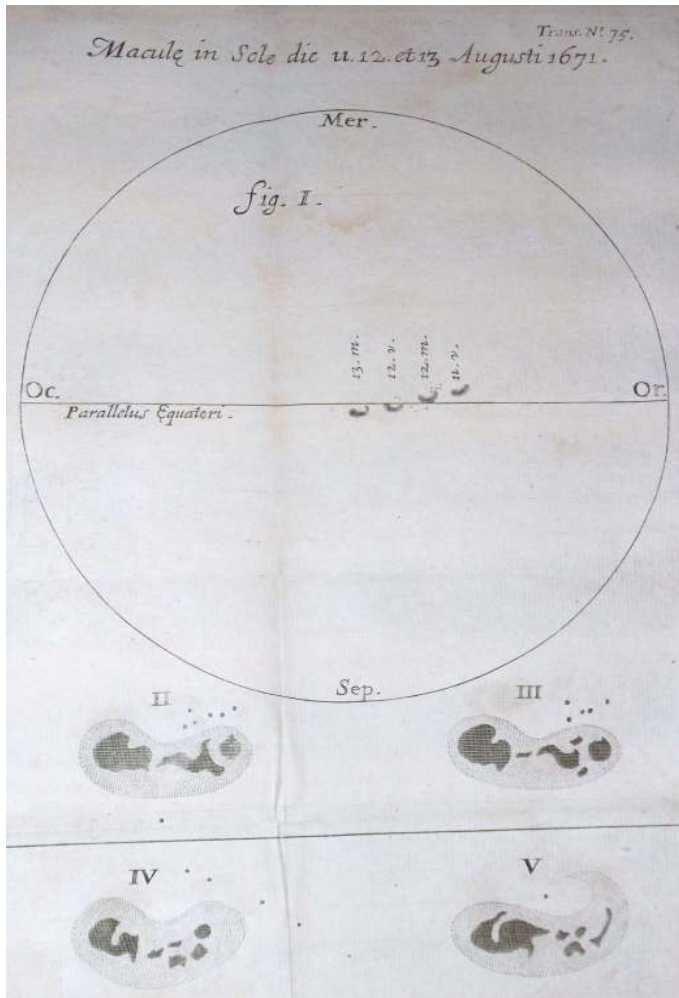 Trans. Nº. 75.
Maculę in Sole die 11.12. et 13 Augusti 1671.
Mer.
fig. I.
13. m.
12. v.
12. m.
11. v.
Oc.
Or.
Parallelus Ęquatori.
Sep.
II
III
IV
V